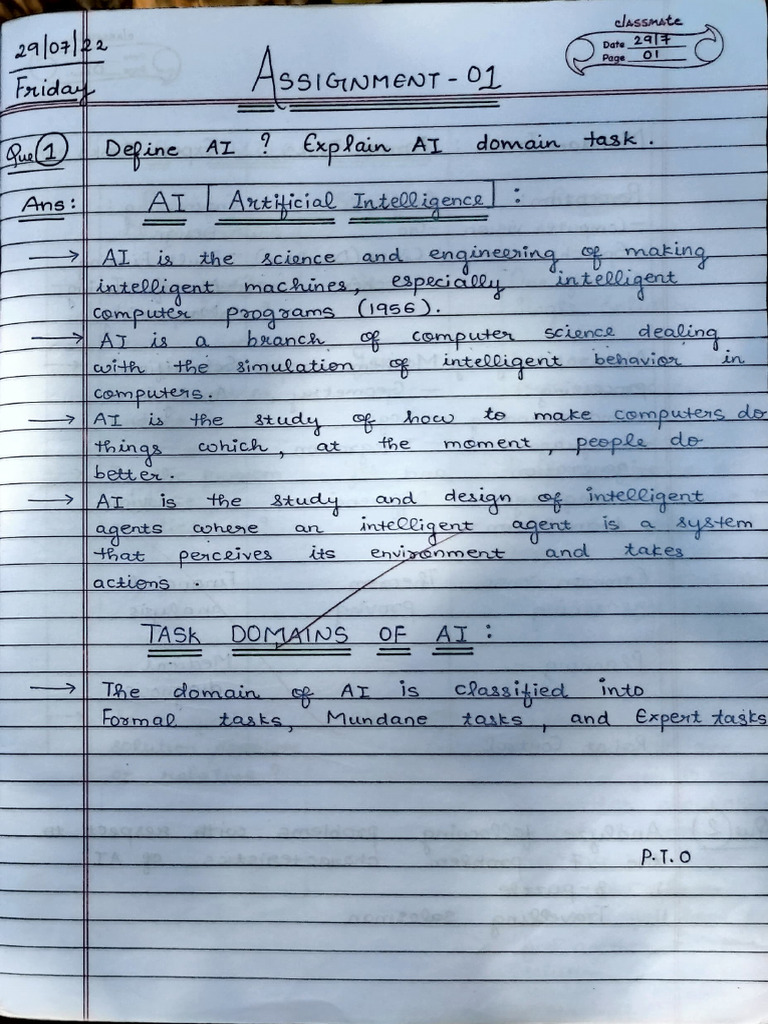 classmate
29/07/22
Date 29/7
Page 01
Friday
ASSIGNMENT - 01
Que 1 Define AI ? Explain AI domain task .
Ans: AI | Artificial Intelligence | :
→ AI is the science and engineering of making
intelligent machines, especially intelligent
computer programs (1956).
→ AI is a branch of computer science dealing
with the simulation of intelligent behavior in
computers.
→ AI is the study of how to make computers do
things which, at the moment, people do
better.
→ AI is the study and design of intelligent
agents where an intelligent agent is a system
that perceives its environment and takes
actions .
TASK DOMAINS OF AI :
→ The domain of AI is classified into
Formal tasks, Mundane tasks, and Expert tasks
P.T.O